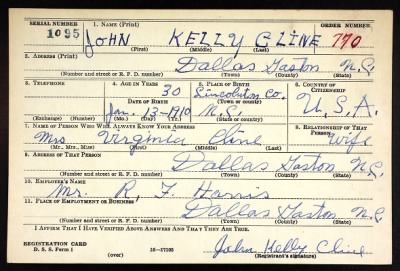 SERIAL NUMBER 1. NAME (Print) ORDER NUMBER
1095 JOHN KELLY CLINE 770
(First) (Middle) (Last)
2. ADDRESS (Print)
Dallas Gaston N.C.
(Number and street or R. F. D. number) (Town) (County) (State)
3. TELEPHONE 4. AGE IN YEARS 5. PLACE OF BIRTH 6. COUNTRY OF CITIZENSHIP
30 Lincolnton Co.
DATE OF BIRTH (Town or county)
Jan. 13-1910 N.C. U.S.A.
(Exchange) (Number) (Mo.) (Day) (Yr.) (State or country)
7. NAME OF PERSON WHO WILL ALWAYS KNOW YOUR ADDRESS 8. RELATIONSHIP OF THAT PERSON
Mrs Virginia Cline Wife
(Mr., Mrs., Miss) (First) (Middle) (Last)
9. ADDRESS OF THAT PERSON
Dallas Gaston N.C.
(Number and street or R. F. D. number) (Town) (County) (State)
10. EMPLOYER'S NAME
Mr. R. F. Harris
11. PLACE OF EMPLOYMENT OR BUSINESS
Dallas Gaston N.C.
(Number and street or R. F. D. number) (Town) (County) (State)
I AFFIRM THAT I HAVE VERIFIED ABOVE ANSWERS AND THAT THEY ARE TRUE.
REGISTRATION CARD
D. S. S. Form 1 16-17105 John Kelly Cline
(Registrant's signature)